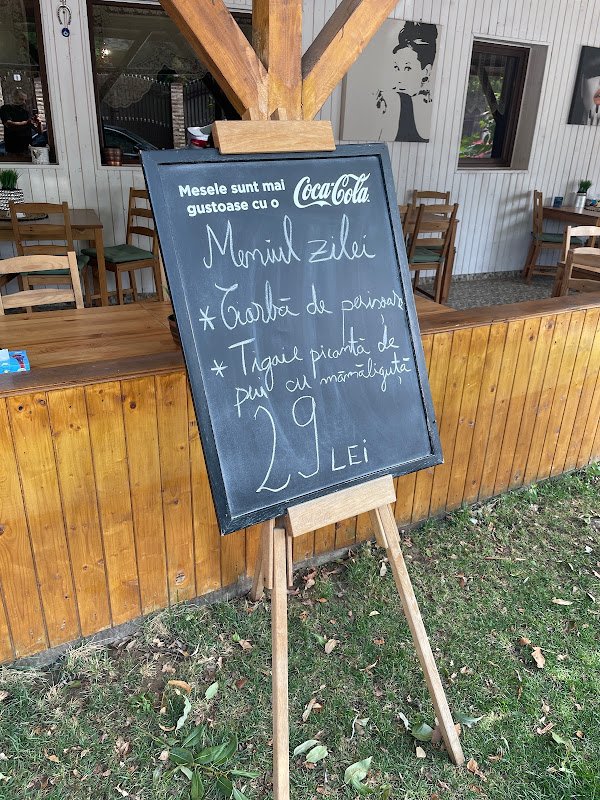 Mesele sunt mai
gustoase cu o
Coca-Cola
Meniul zilei
* Ciorbă de perișoare
* Tigaie picantă de
pui cu mămăliguță
29 LEI